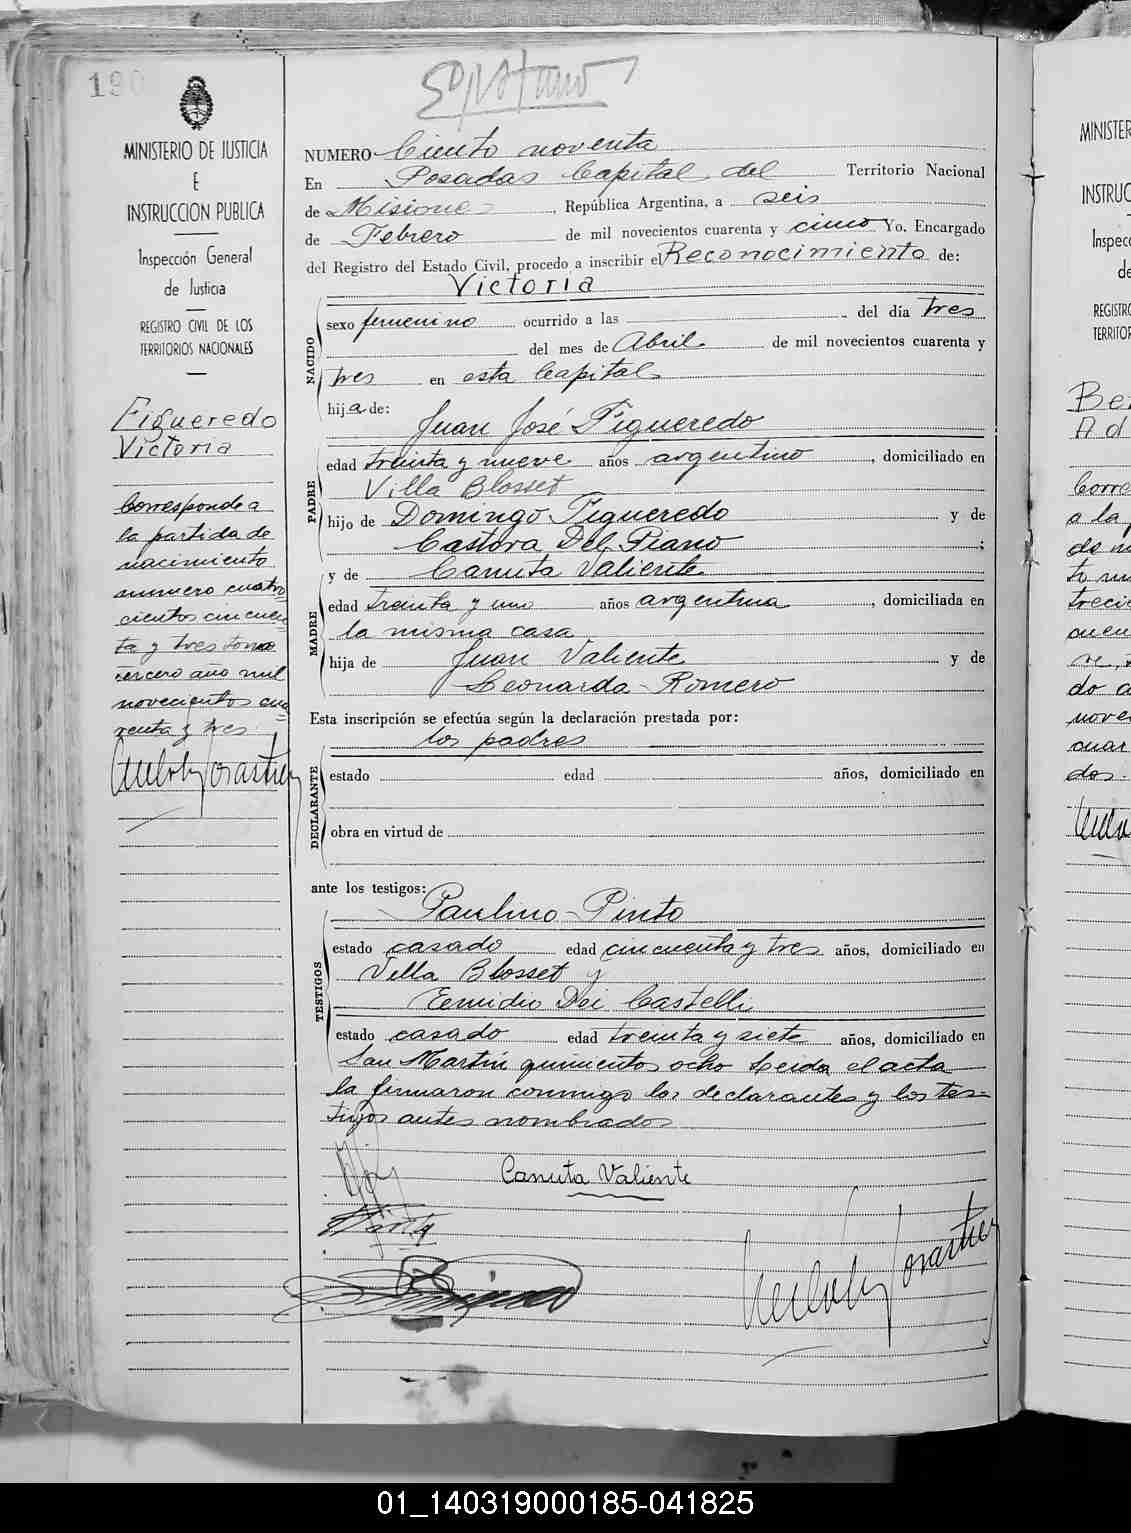 190
MINISTERIO DE JUSTICIA
E
INSTRUCCION PUBLICA
Inspección General
de Justicia
REGISTRO CIVIL DE LOS
TERRITORIOS NACIONALES
Figueredo
Victoria
Corresponde a
la partida de
nacimiento
numero cuatro
cientos cincuen
ta y tres tomo
tercero año mil
novecientos cua
renta y tres.
NUMERO Ciento noventa
En Posadas Capital del Territorio Nacional
de Misiones, República Argentina, a seis
de Febrero de mil novecientos cuarenta y cinco Yo, Encargado
del Registro del Estado Civil, procedo a inscribir el Reconocimiento de:
Victoria
NACIDO
sexo femenino ocurrido a las del día tres
del mes de Abril de mil novecientos cuarenta y
tres en esta Capital
hija de:
Juan José Figueredo
PADRE
edad treinta y nueve años argentino, domiciliado en
Villa Blosset
hijo de Domingo Figueredo y de
Castora Del Piano;
y de Canuta Valiente
MADRE
edad treinta y uno años argentina, domiciliada en
la misma casa
hija de Juan Valiente y de
Leonarda Romero
Esta inscripción se efectúa según la declaración prestada por:
los padres
DECLARANTE
estado edad años, domiciliado en
obra en virtud de
ante los testigos:
Paulino Pinto
TESTIGOS
estado casado edad cincuenta y tres años, domiciliado en
Villa Blosset y
Emidio Dei Castelli
estado casado edad treinta y siete años, domiciliado en
San Martin quinientos ocho Leida el acta
la firmaron conmigo los declarantes y los tes-
tigos antes nombrados
Canuta Valiente
MINISTER
INSTRUC
Inspecc
de
REGISTRO
TERRITOR
Ber
Ad
Corre
a la p
de n
to nu
trecie
cuen
ve,
do a
nove
cuar
dos.
01_140319000185-041825